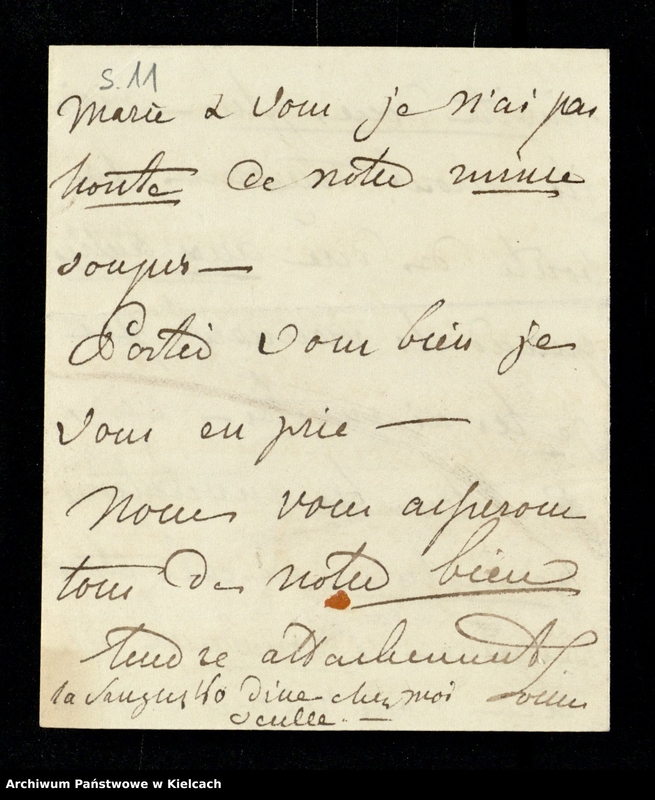 S. 11
Marie & vous je n'ai pas
honte de notre mince
souper —
Portés vous bien je
vous en prie —
Nous vous asserons
tous de notre bien
tendre attachement
la Sangusko dine chez moi
seulle. —
Archiwum Państwowe w Kielcach